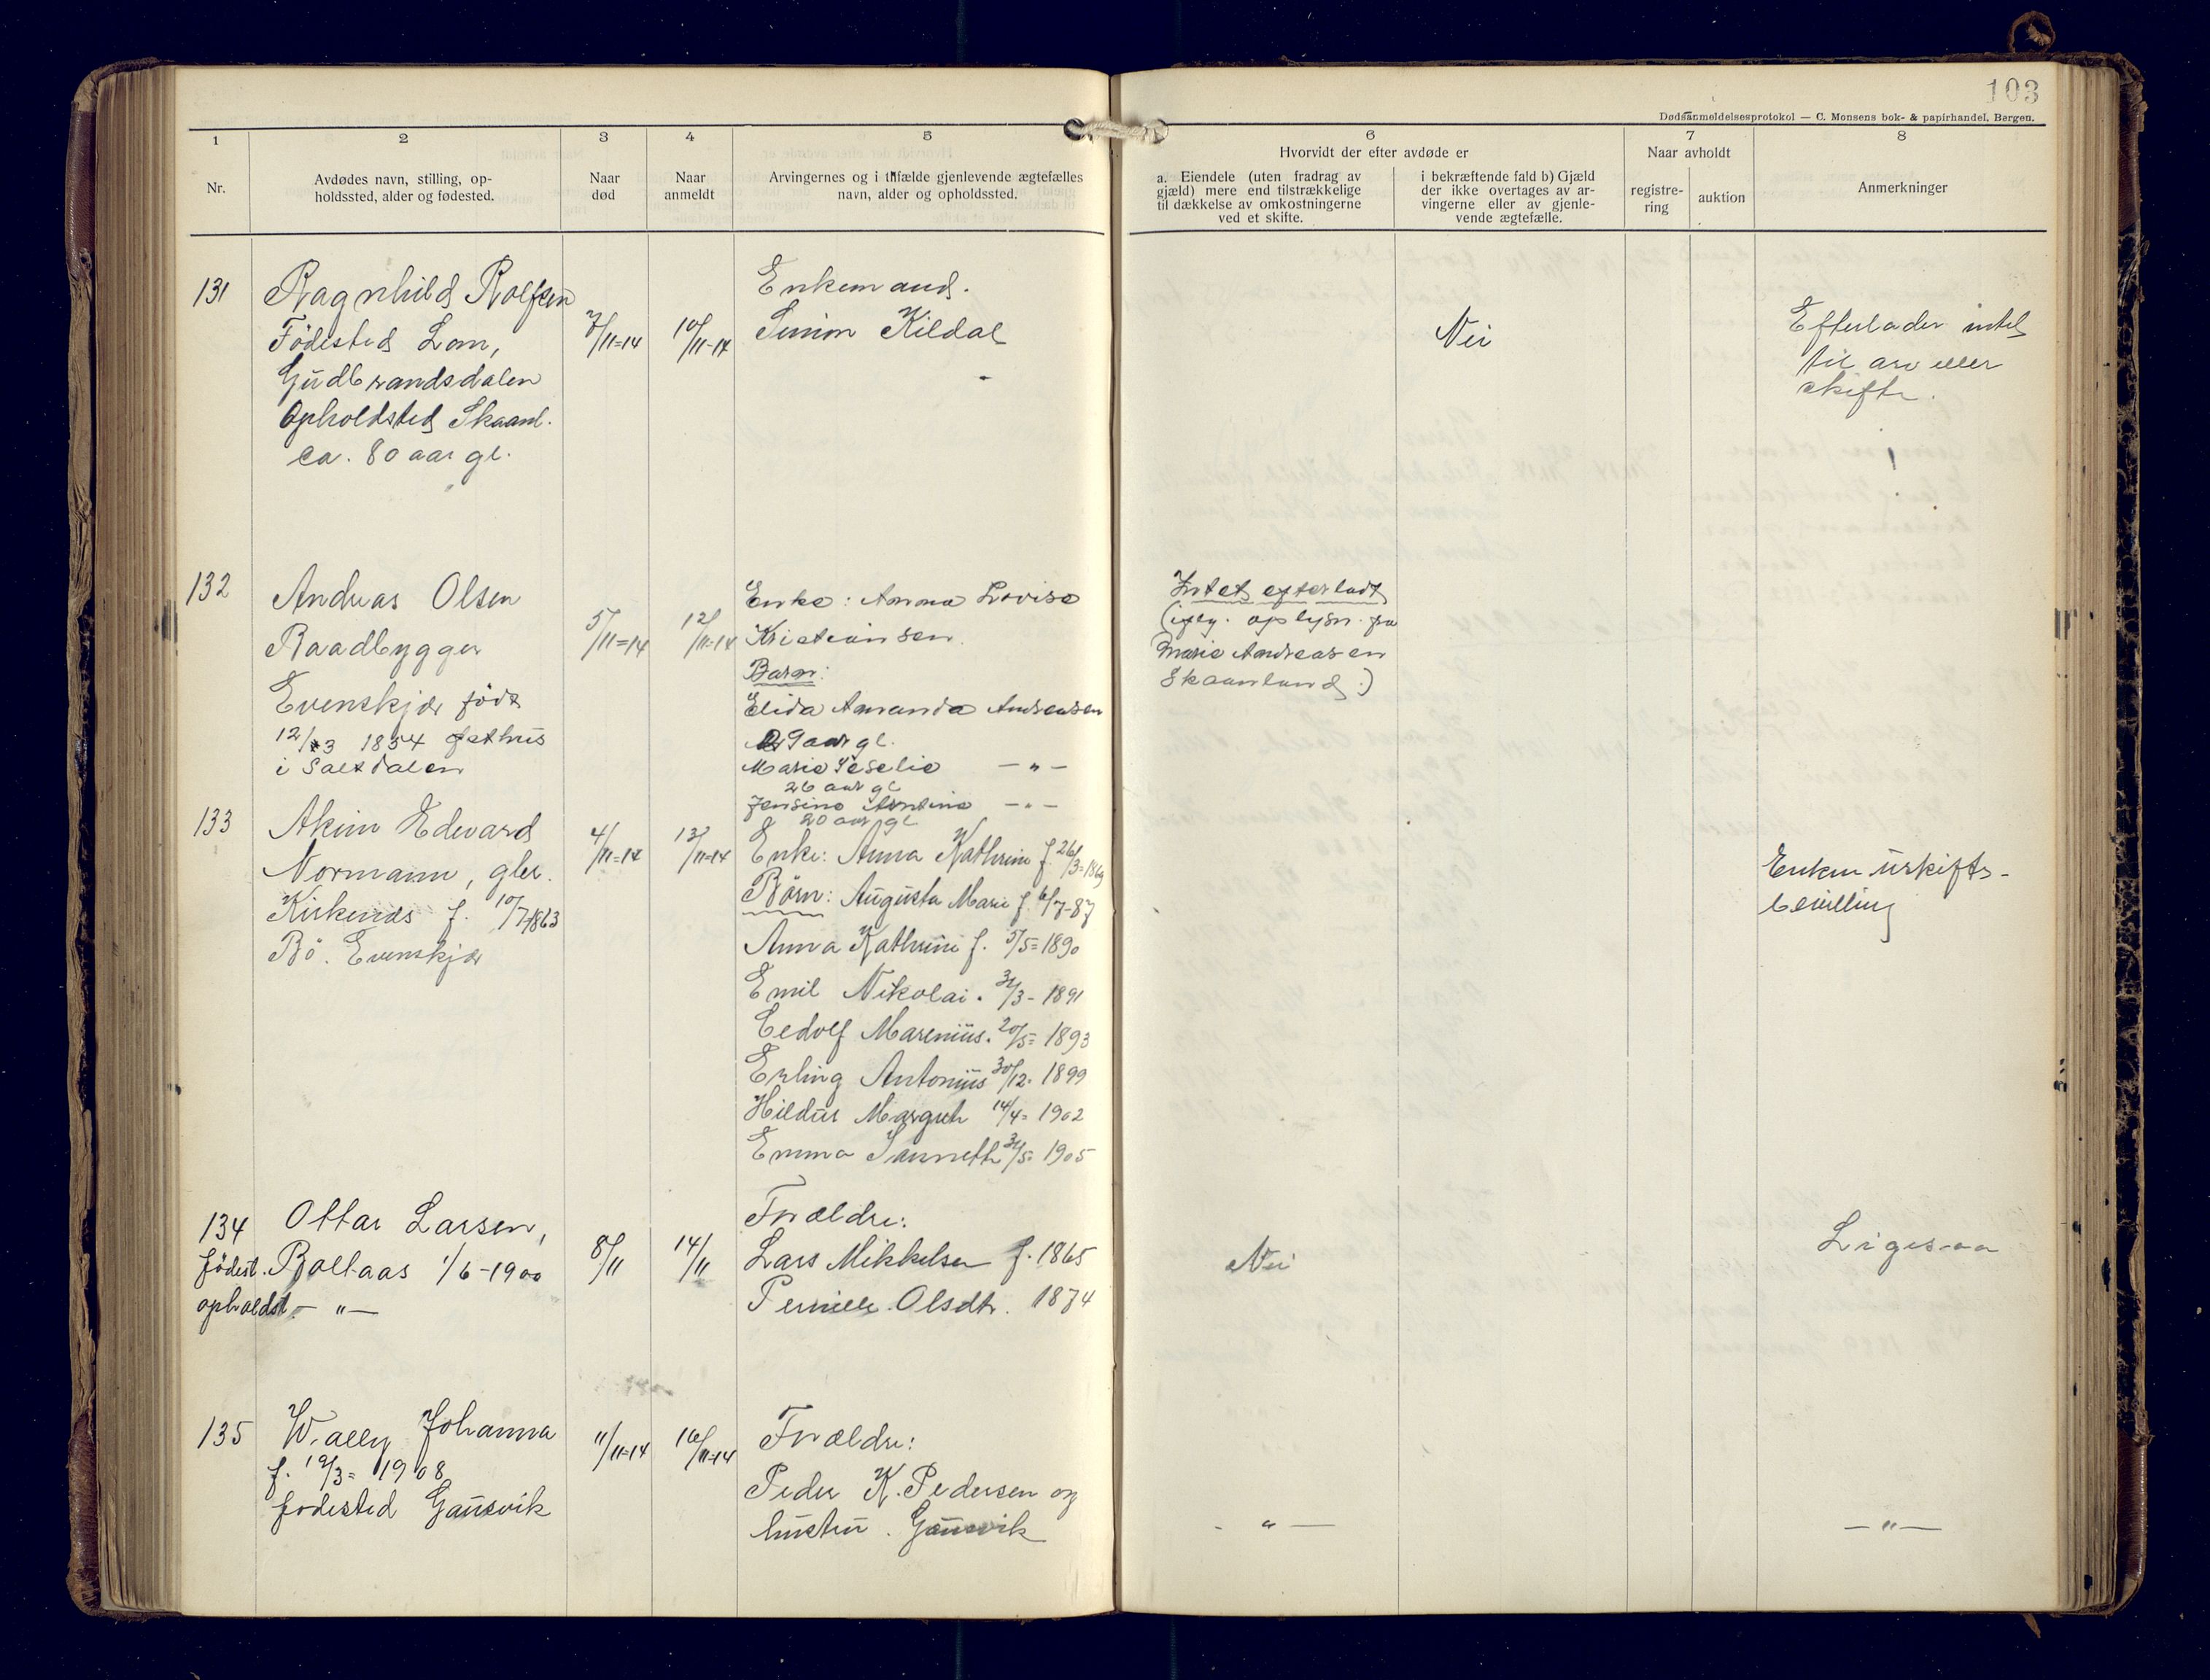 103
Dødsanmeldelsesprotokol — C. Monsens bok- & papirhandel, Bergen.
1
2
3
4
5
6
7
8
Nr.
Avdødes navn, stilling, op-
holdssted, alder og fødested.
Naar
død
Naar
anmeldt
Arvingernes og i tilfælde gjenlevende ægtefælles
navn, alder og opholdssted.
Hvorvidt der efter avdøde er
a. Eiendele (uten fradrag av
gjæld) mere end tilstrækkelige
til dækkelse av omkostningerne
ved et skifte.
i bekræftende fald b) Gjæld
der ikke overtages av ar-
vingerne eller av gjenle-
vende ægtefælle.
Naar avholdt
registre-
ring
auktion
Anmerkninger
131
Ragnhild Rolfsen
Födested Lom,
Gudbrandsdalen
Opholdsted Skaanl.
ca. 80 aar gl.
7/11=14
10/11-14
Enkemand.
Simon Kildal
Nei
Efterlader intet
til arv eller
skifte.
132
Andreas Olsen
Baadbygger
Evenskjær født
12/3 1854
i Saltdalen
5/11=14
12/11-14
Enke: Anna Lovise
Kristiansen.
Barn:
Elida Amanda Andreasen
29 aar gl.
Marie Teselie — " —
26 aar gl
Jensine Arntine — " —
20 aar gl
Intet efterladt
(iflg. oplysn. fra
Marie Andreasen
Skaanland.)
133
Akim Edvard
Normann, gbr.
f. 10/7-1863
Bö. Evenskjær
4/11=14
13/11=14
Enke: Anna Kathrine f. 26/3=1869
Börn: Augusta Marie f. 6/7-87
Anna Kathrine f. 5/5=1890
Emil Nikolai. 31/3-1891
Eedolf Marenius. 20/5=1893
Erling Antonius 30/12=1899
Hildur Margreth 14/4=1902
Emma Jannette 31/5=1905
Enken uskifte-
bevilling
134
Ottar Larsen,
födest. Boltaas 1/6-1900
opholdst. — " —
8/11
14/11
Forældre:
Lars Mikkelsen f. 1865
Pernille Olsdtr. 1874
Nei
Ligesaa
135
Wally Johanna
f. 19/3=1908
födested Gausvik
11/11=14
16/11=14
Forældre:
Peder K. Pedersen og
hustru. Gausvik
- " —
— " —